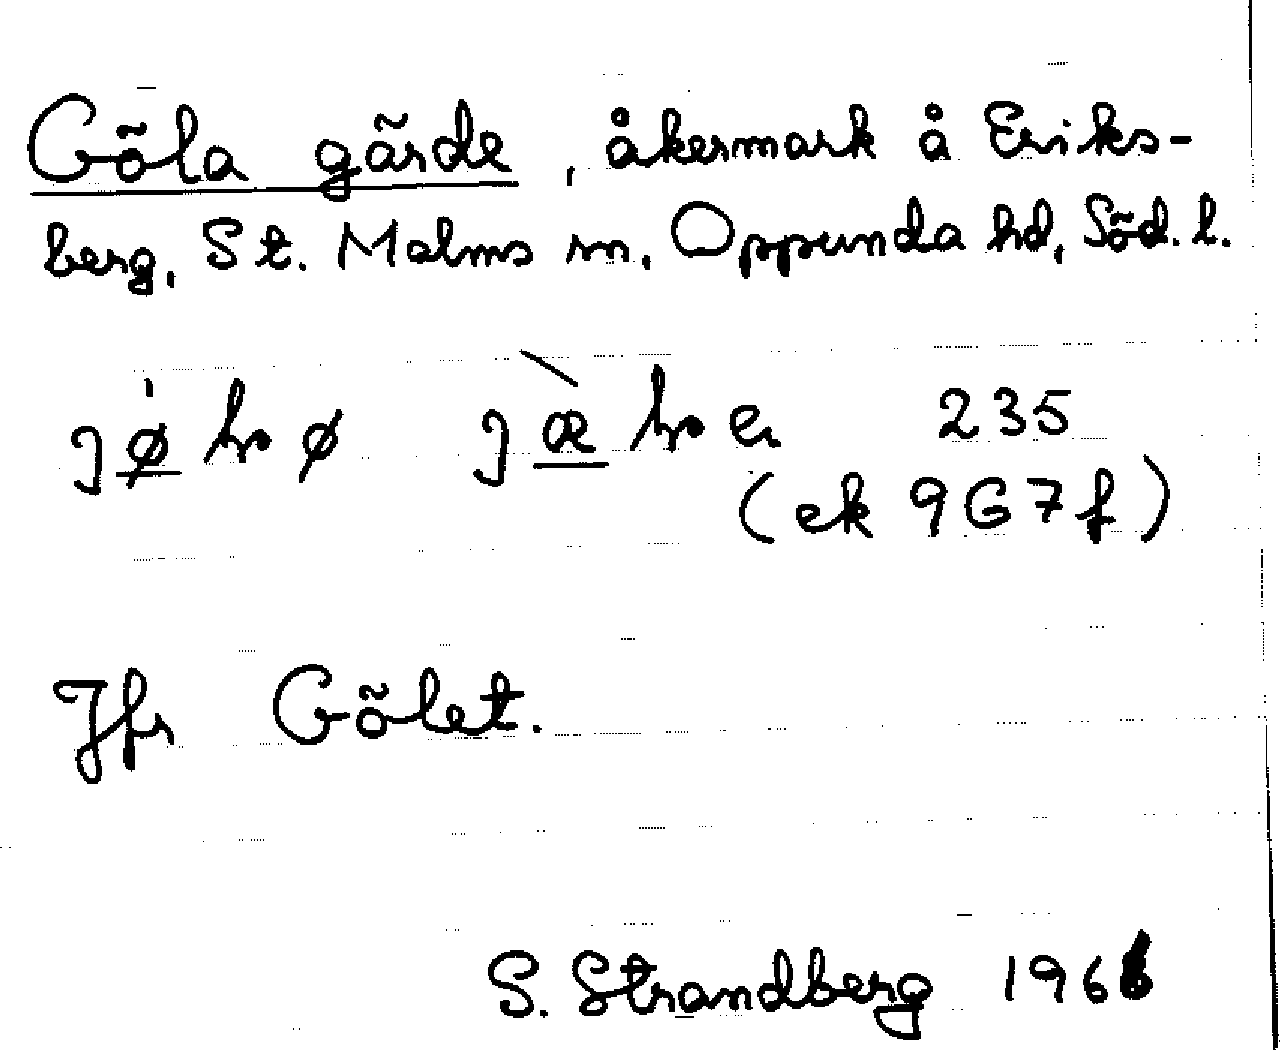 Göla gärde, åkermark å Eriks-
berg, St. Malms sn, Oppunda hd, Söd. l.
235
(ek 9G7f)
Jfr Gölet.
S. Strandberg 1966